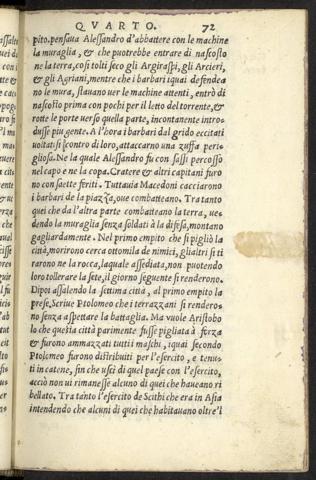 QVARTO. 72
pito. pensaua Alessandro d'abbattere con le machine
la muraglia, & che puotrebbe entrare di nascosto
ne la terra, così tolti seco gli Argiraspi, gli Arcieri,
& gli Agriani, mentre che i barbari iquai defendea
no le mura, stauano uer le machine attenti, entrò di
nascosto prima con pochi per il letto del torrente, &
rotte le porte uerso quella parte, incontanente intro-
dusse piu gente. A l'hora i barbari dal grido eccitati
uoltatisi contro di loro, attaccarno una zuffa peri-
gliosa. Ne la quale Alessandro fu con sassi percosso
nel capo e ne la copa. Cratere & altri capitani furo
no con saette feriti. Tuttauia Macedoni cacciarono
i barbari de la piazza, oue combatteano. Tra tanto
quei che da l'altra parte combatteano la terra, ue-
dendo la muraglia senza soldati à la difesa, montano
gagliardamente. Nel primo empito che si pigliò la
città, morirono cerca ottomila de nimici, gli altri si ti
rarono ne la rocca, laquale assediata, non puotendo
loro tollerare la sete, il giorno seguente si renderono.
Dipoi assalendo la settima città, al primo empito la
prese, Scriue Ptolomeo che i terrazzani si rendero-
no senza aspettare la battaglia. Ma vuole Aristobo
lo che questa città parimente fusse pigliata à forza
& furono ammazzati tutti i maschi, iquai secondo
Ptolomeo furono distribuiti per l'esercito, e tenu-
ti in catene, fin che uscì di quel paese con l'esercito,
acciò non ui rimanesse alcuno di quei che haueano ri
bellato. Tra tanto l'esercito de Scithi che era in Asia
intendendo che alcuni di quei che habitauano oltre'l